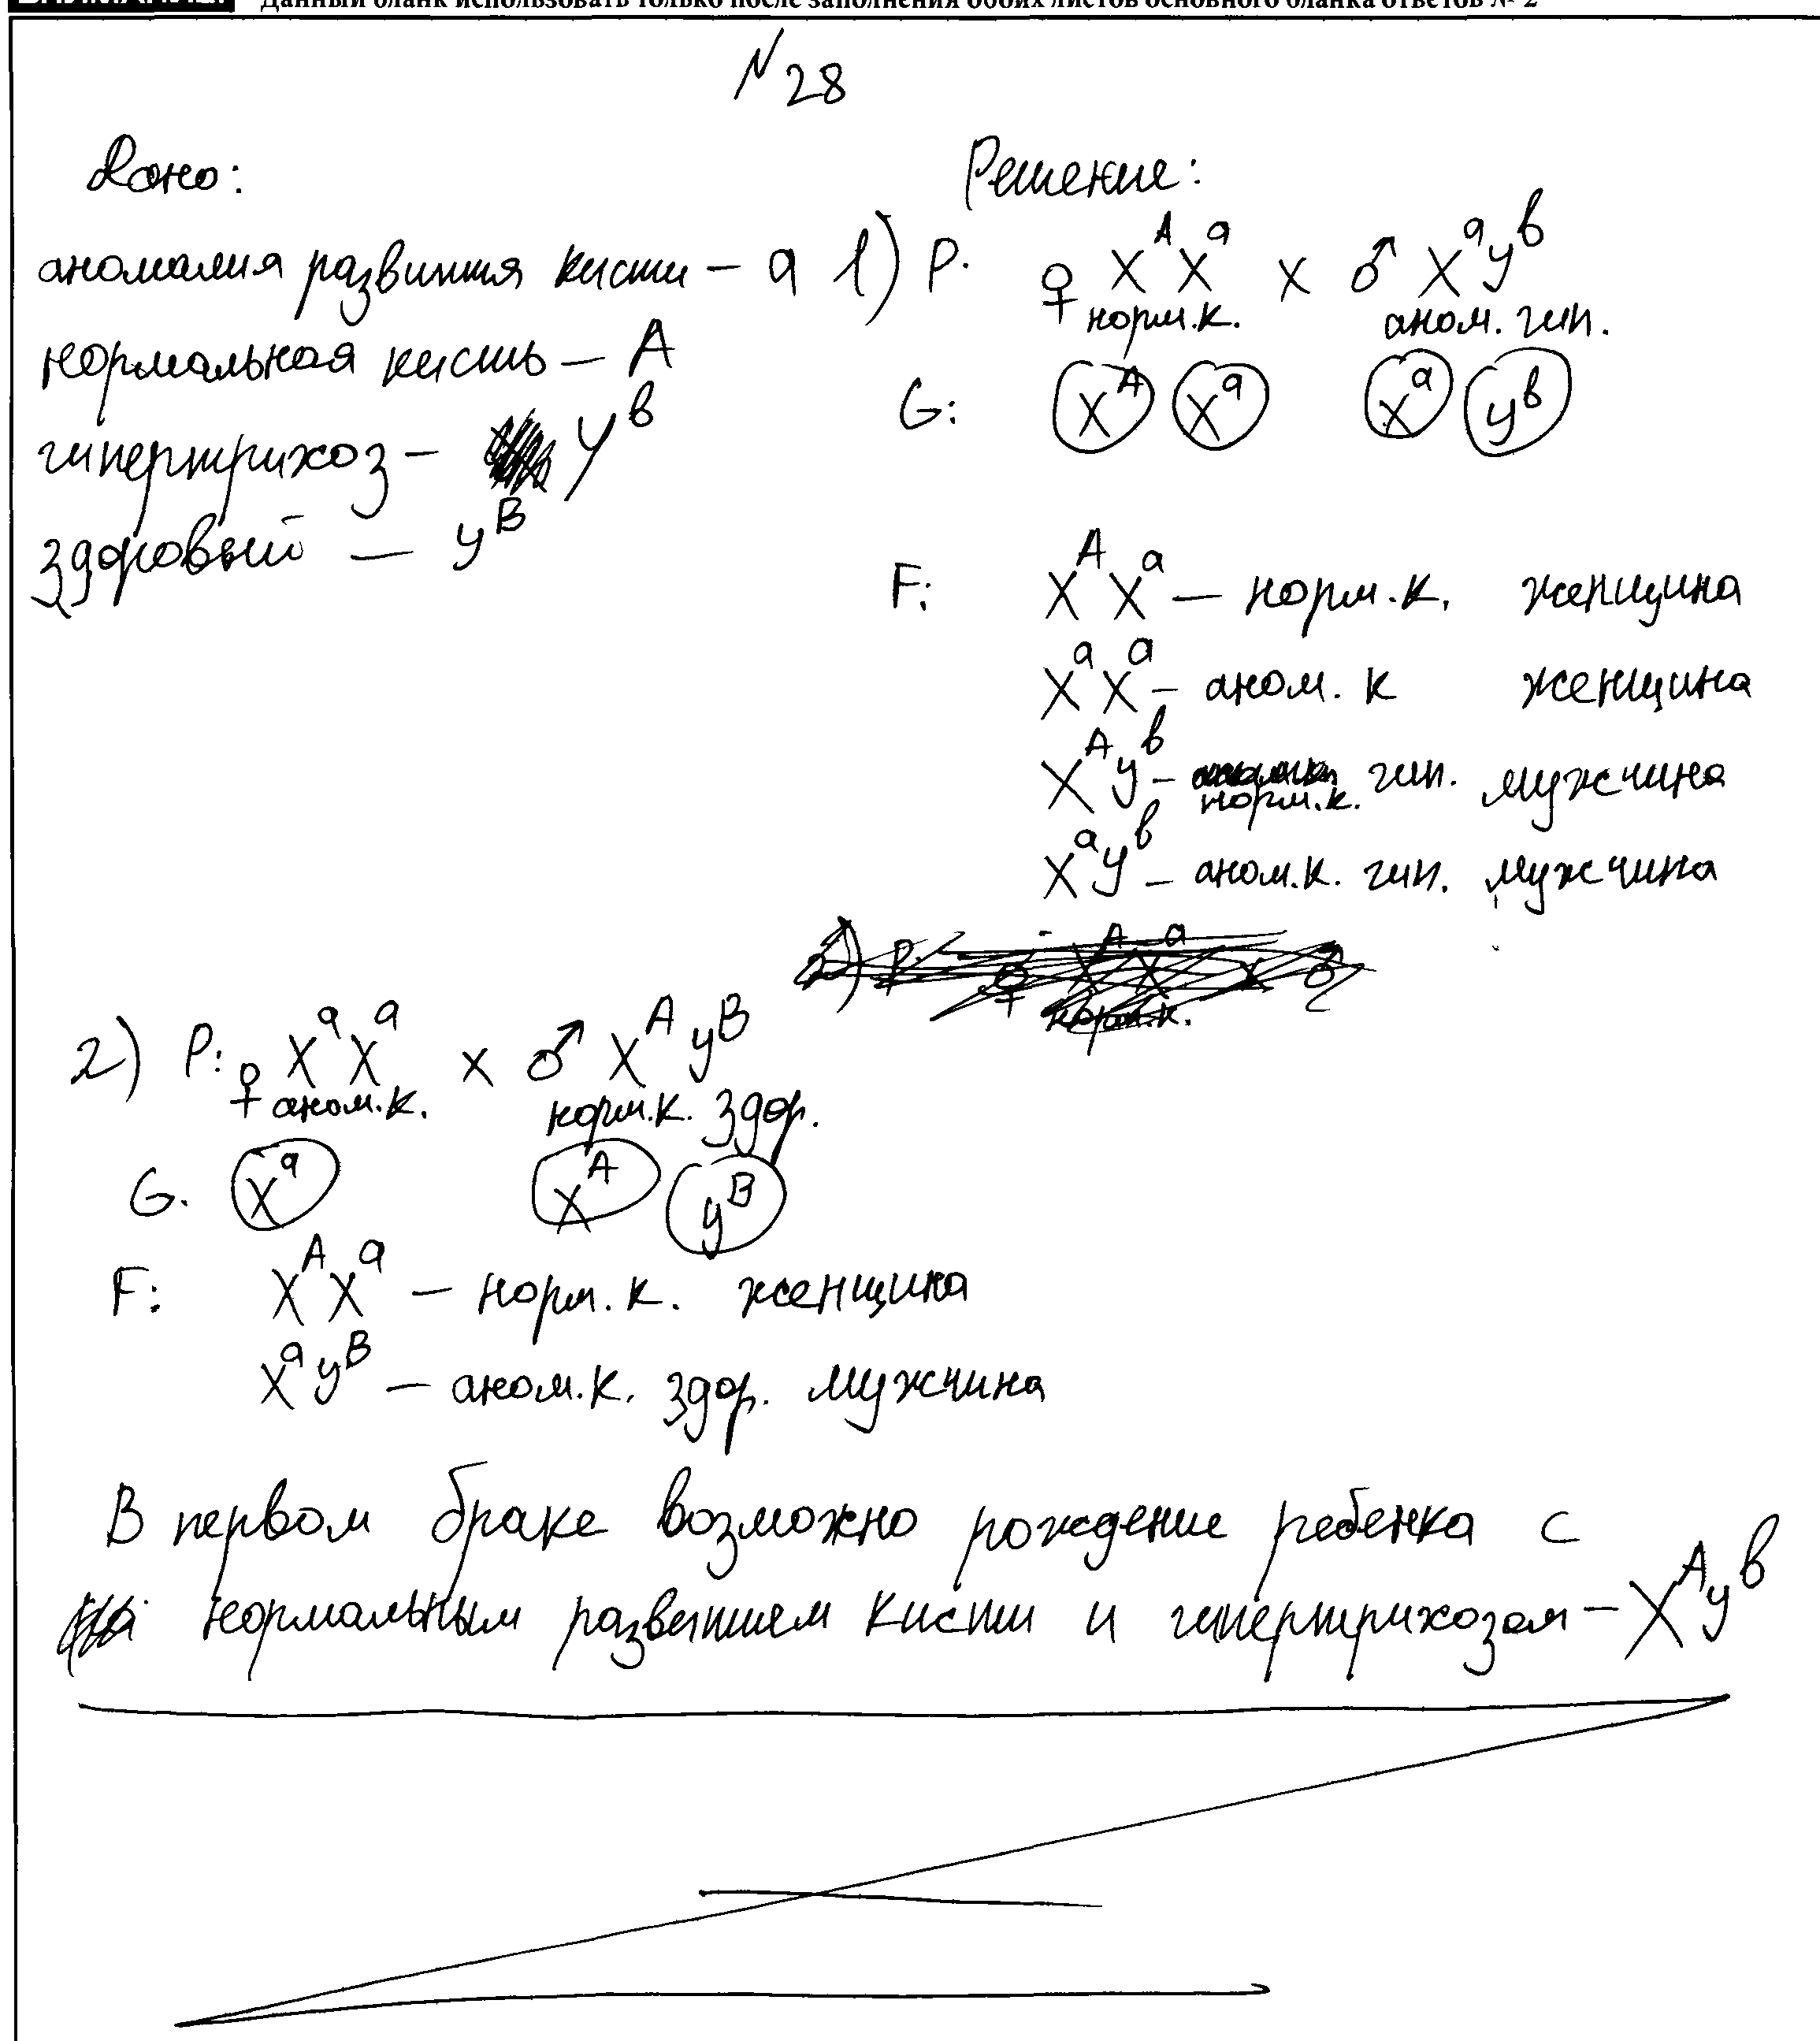 Данный бланк использовать только после заполнения обоих листов основного бланка ответов № 2
№ 28
Дано:
аномалия развития кисти – a
нормальная кисть – A
гипертрихоз – Y^b
здоровый – y^B
Решение:
1) P. ♀ X^A X^a x ♂ X^a y^b
норм.к. аном. гип.
G: X^A X^a X^a y^b
F: X^A X^a – норм.к. женщина
X^a X^a – аном. к женщина
X^A y^b – норм.к. гип. мужчина
X^a y^b – аном.к. гип. мужчина
2) P: ♀ X^a X^a x ♂ X^A y^B
аном.к. норм.к. здор.
G. X^a X^A y^B
F: X^A X^a – норм.к. женщина
X^a y^B – аном.к. здор. мужчина
В первом браке возможно рождение ребенка с
нормальным развитием кисти и гипертрихозом – X^A y^b